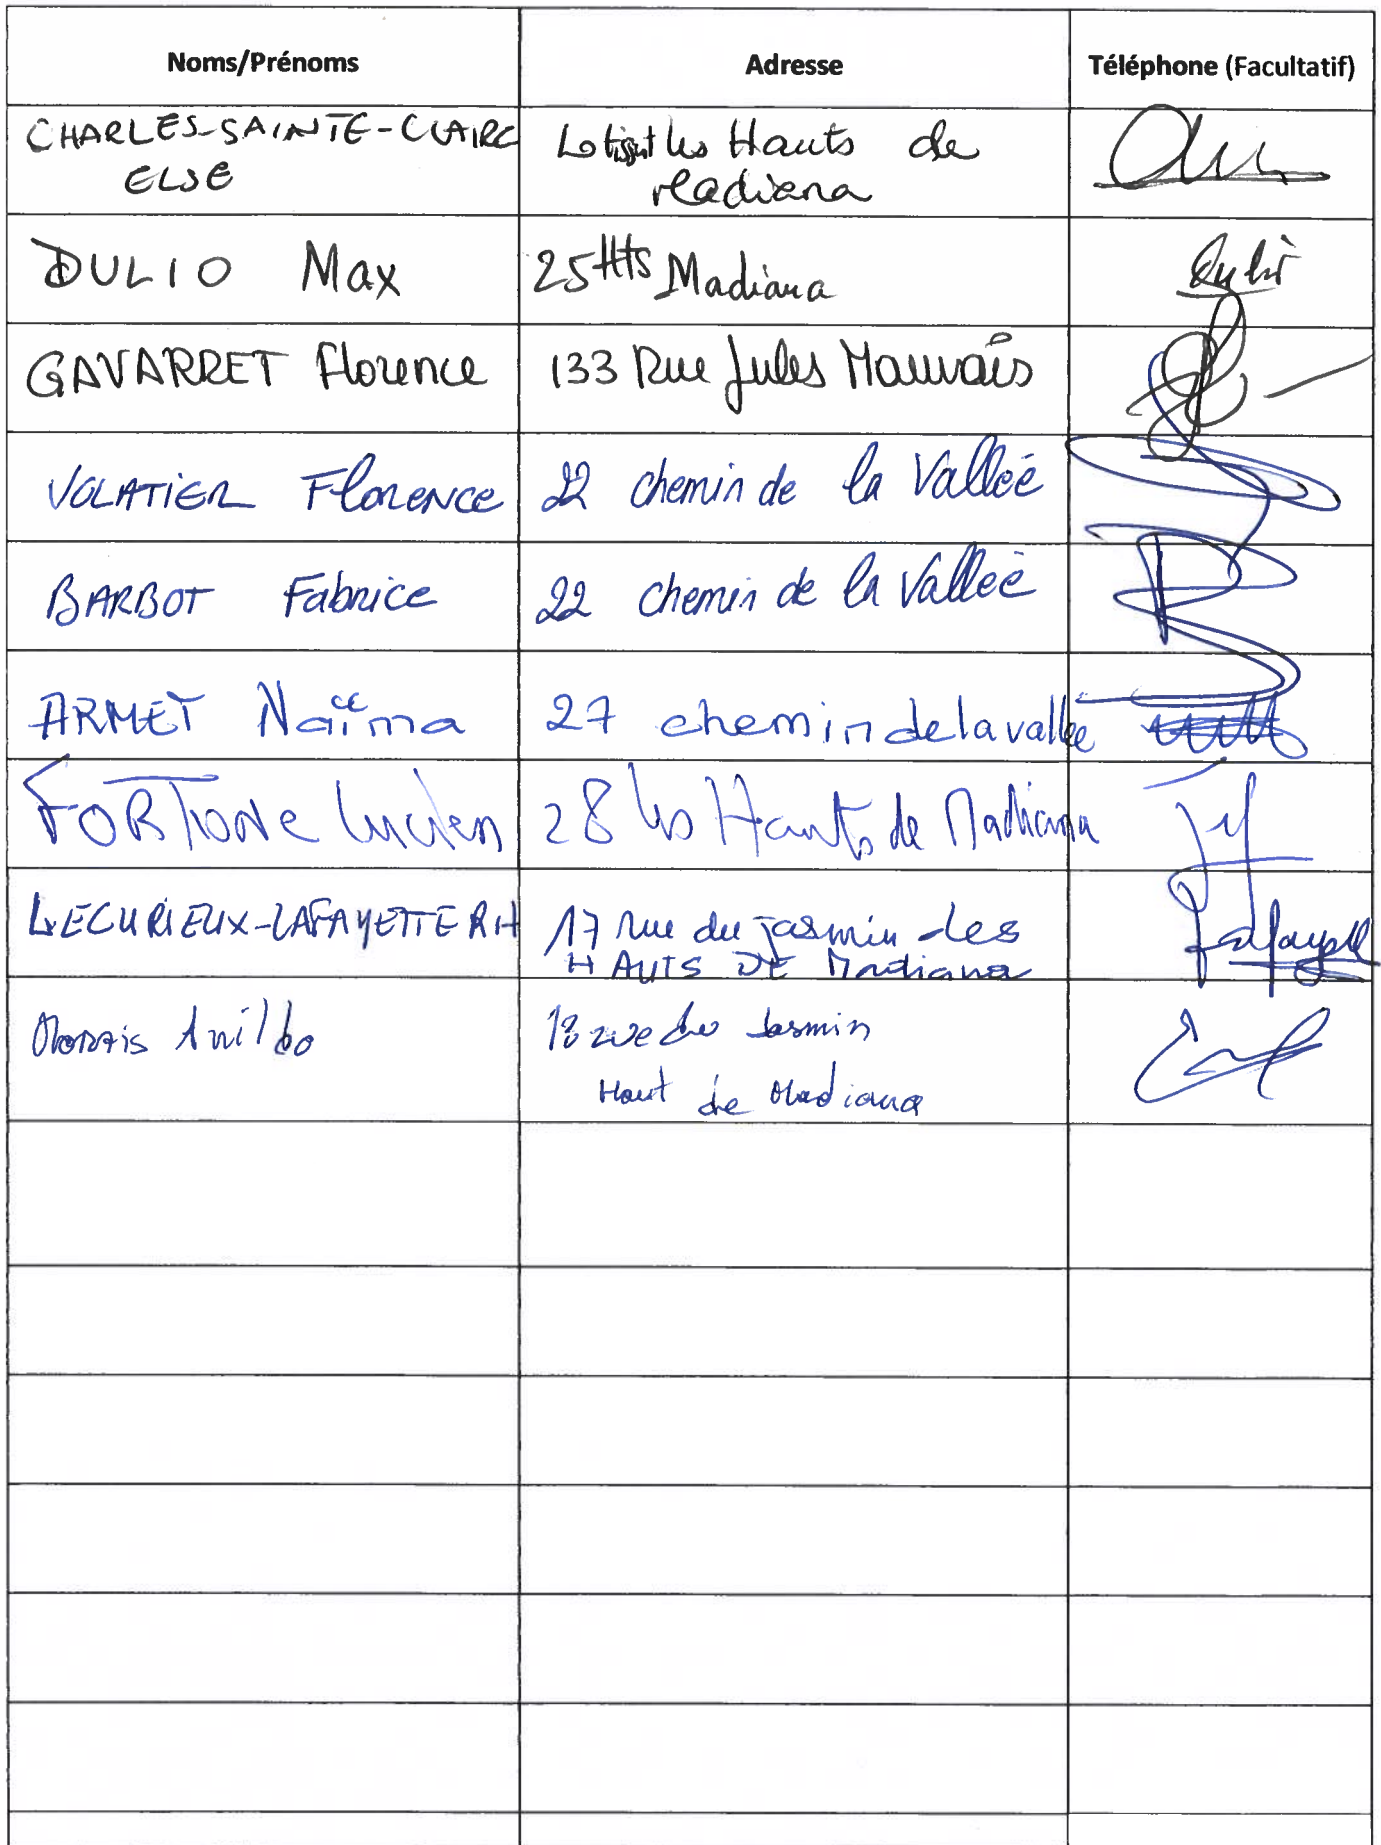 Noms/Prénoms Adresse Téléphone (Facultatif)
CHARLES-SAINTE-CLAIRE
ELSE
Lotisst les Hauts de
Madiana
DULIO Max 25 Hts Madiana
GAVARRET Florence 133 Rue Jules Mauvais
VOLATIER Florence 22 chemin de la Vallée
BARBOT Fabrice 22 chemin de la Vallée
ARMET Naïma 27 chemin de la vallée
FORTUNE Lucien 28 les Hauts de Madiana
LECURIEUX-LAFAYETTE RH 17 rue du jasmin des
HAUTS DE Madiana
18 rue du Jasmin
Haut de Madiana